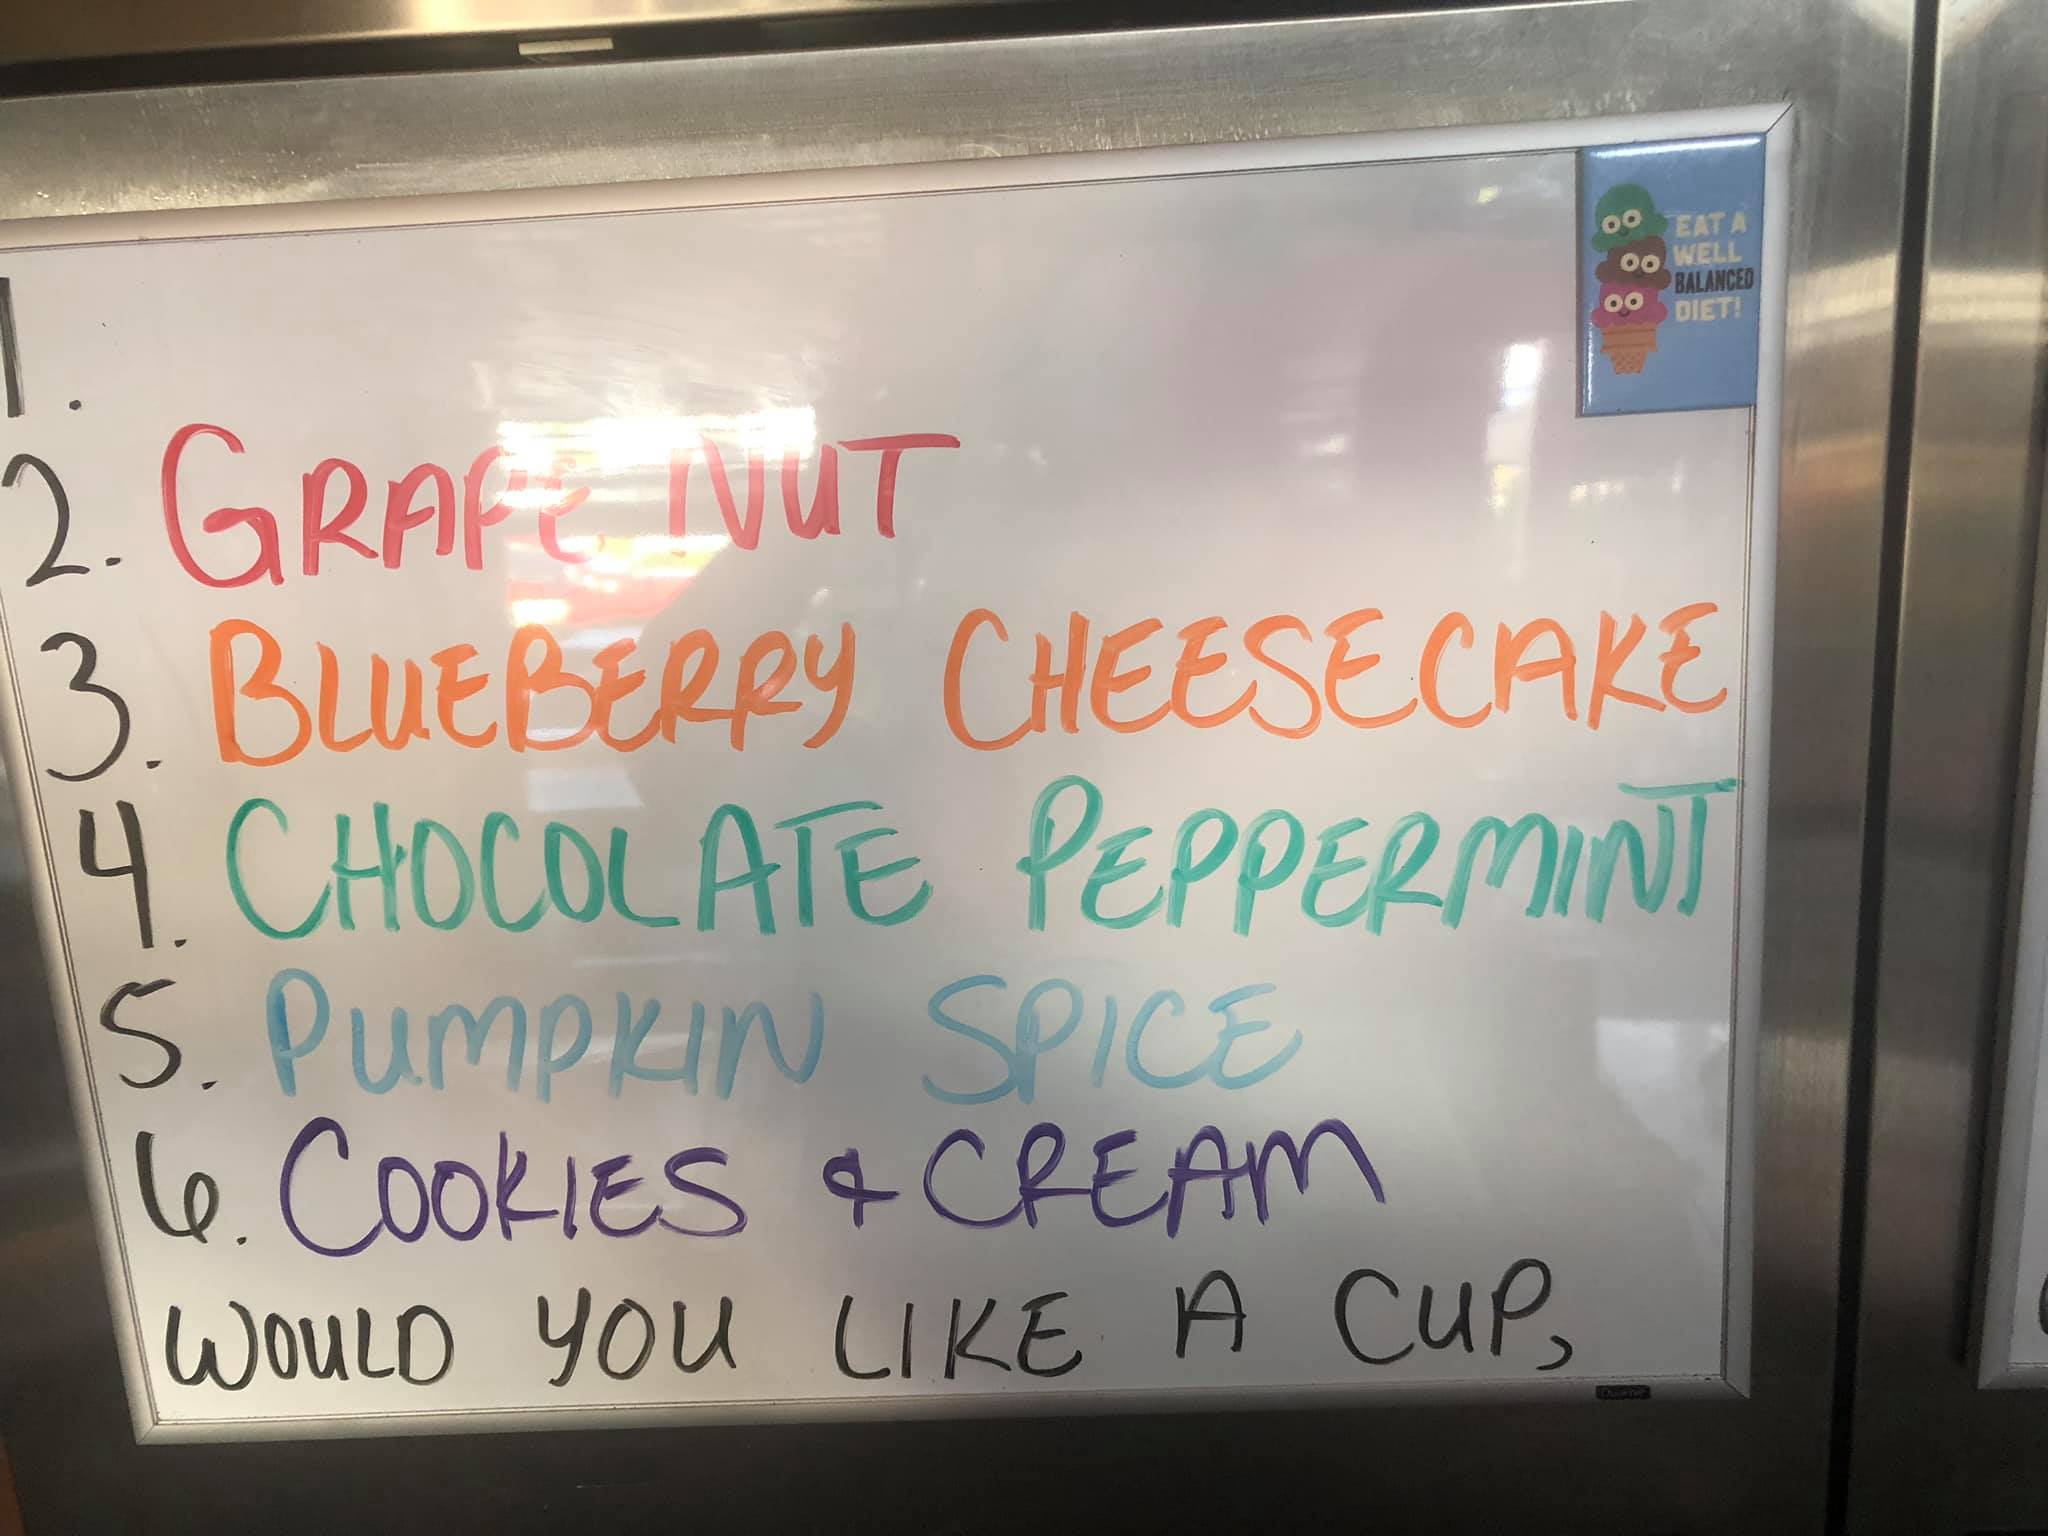 1.
2. GRAPE NUT
3. BLUEBERRY CHEESECAKE
4. CHOCOLATE PEPPERMINT
5. PUMPKIN SPICE
6. COOKIES & CREAM
WOULD YOU LIKE A CUP,
EAT A
WELL
BALANCED
DIET!